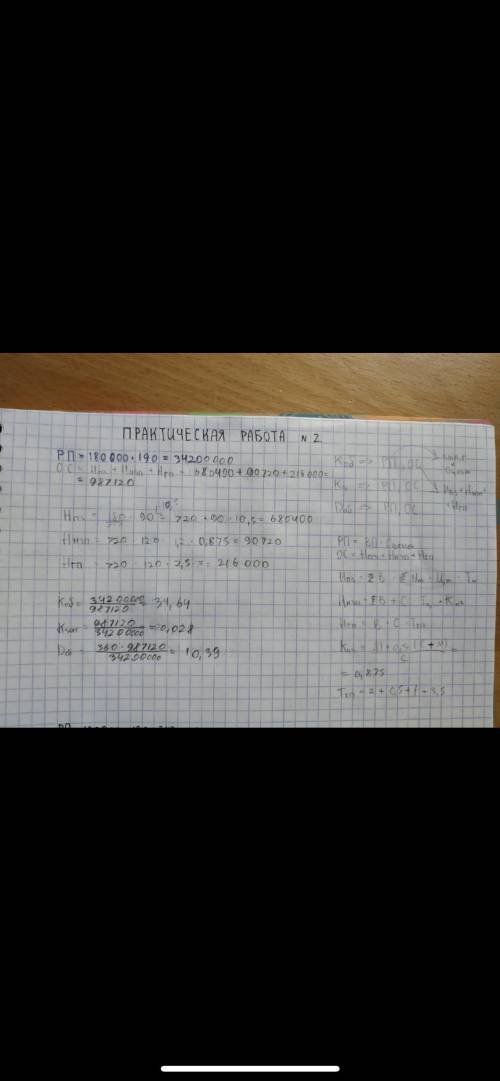 ПРАКТИЧЕСКАЯ РАБОТА №2
РП = 180000 · 190 = 34200000
ОС = Нпз + Ннзп + Нгп = 680400 + 90720 + 216000 =
= 987120
Нпз = 90 = 720 · 90 · 10,5 = 680400
Ннзп = 720 · 120 · 1,2 · 0,875 = 90720
Нгп = 720 · 120 · 2,5 = 216000
Коб = 34200000 / 987120 = 34,64
Кзаг = 987120 / 34200000 = 0,028
Доб = 360 · 987120 / 34200000 = 10,39
Коб => РП, ОС
Кз => РП, ОС
Доб => РП, ОС
Нпз + Ннзп
+ Нгп
РП = ВП · Сцена
ОС = Нпз + Ннзп + Нгп
Нгп = В · С · Тгп
= 0,875
= 2 + 0,5 + 1 = 3,5